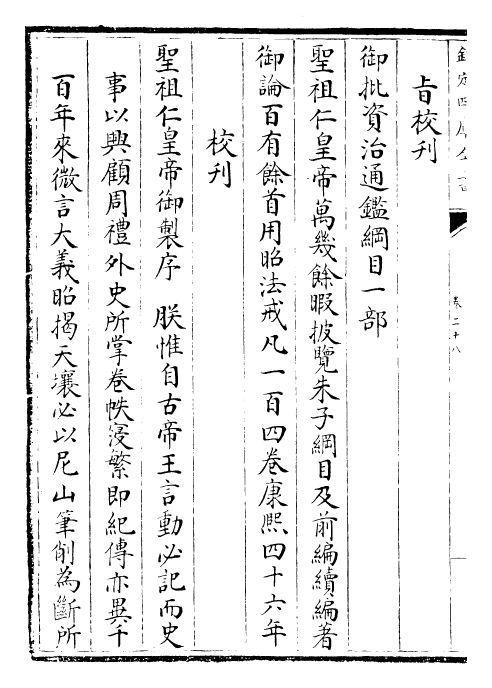 欽定四庫全書
卷二十八
旨校刋
御批資治通鑑綱目一部
聖祖仁皇帝萬幾餘暇披覽朱子綱目及前編續編著
御論百有餘首用昭法戒凡一百四卷康熙四十六年
校刋
聖祖仁皇帝御製序　朕惟自古帝王言動必記而史
事以興顧周禮外史所掌卷帙寖繁即紀傳亦異千
百年來微言大義昭揭天壤必以尼山筆削為斷所